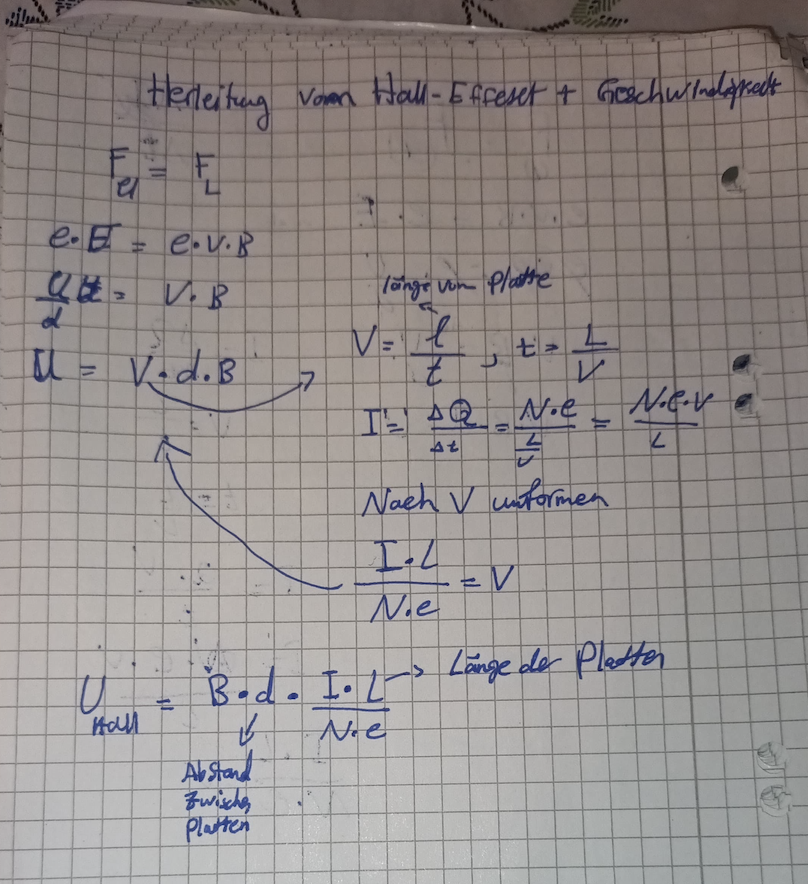 Herleitung vom Hall-Effekt + Geschwindigkeit
F_el = F_L
e·E = e·v·B
U/d = V·B
länge vom Platte
U = V·d·B
V = l/t, t = L/V
I = ΔQ/Δt = N·e/(L/V) = N·e·v/L
Nach V umformen
I·L/N·e = V
U_Hall = B·d· I·L/N·e -> Länge der Platten
Abstand
zwischen
Platten